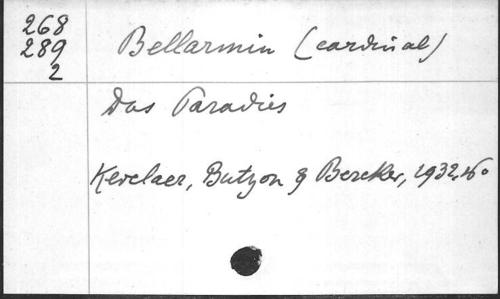 268
289
2
Bellarmin (cardinal)
Das Paradies
Kevelaer, Butzon & Bercker, 1932, 16°